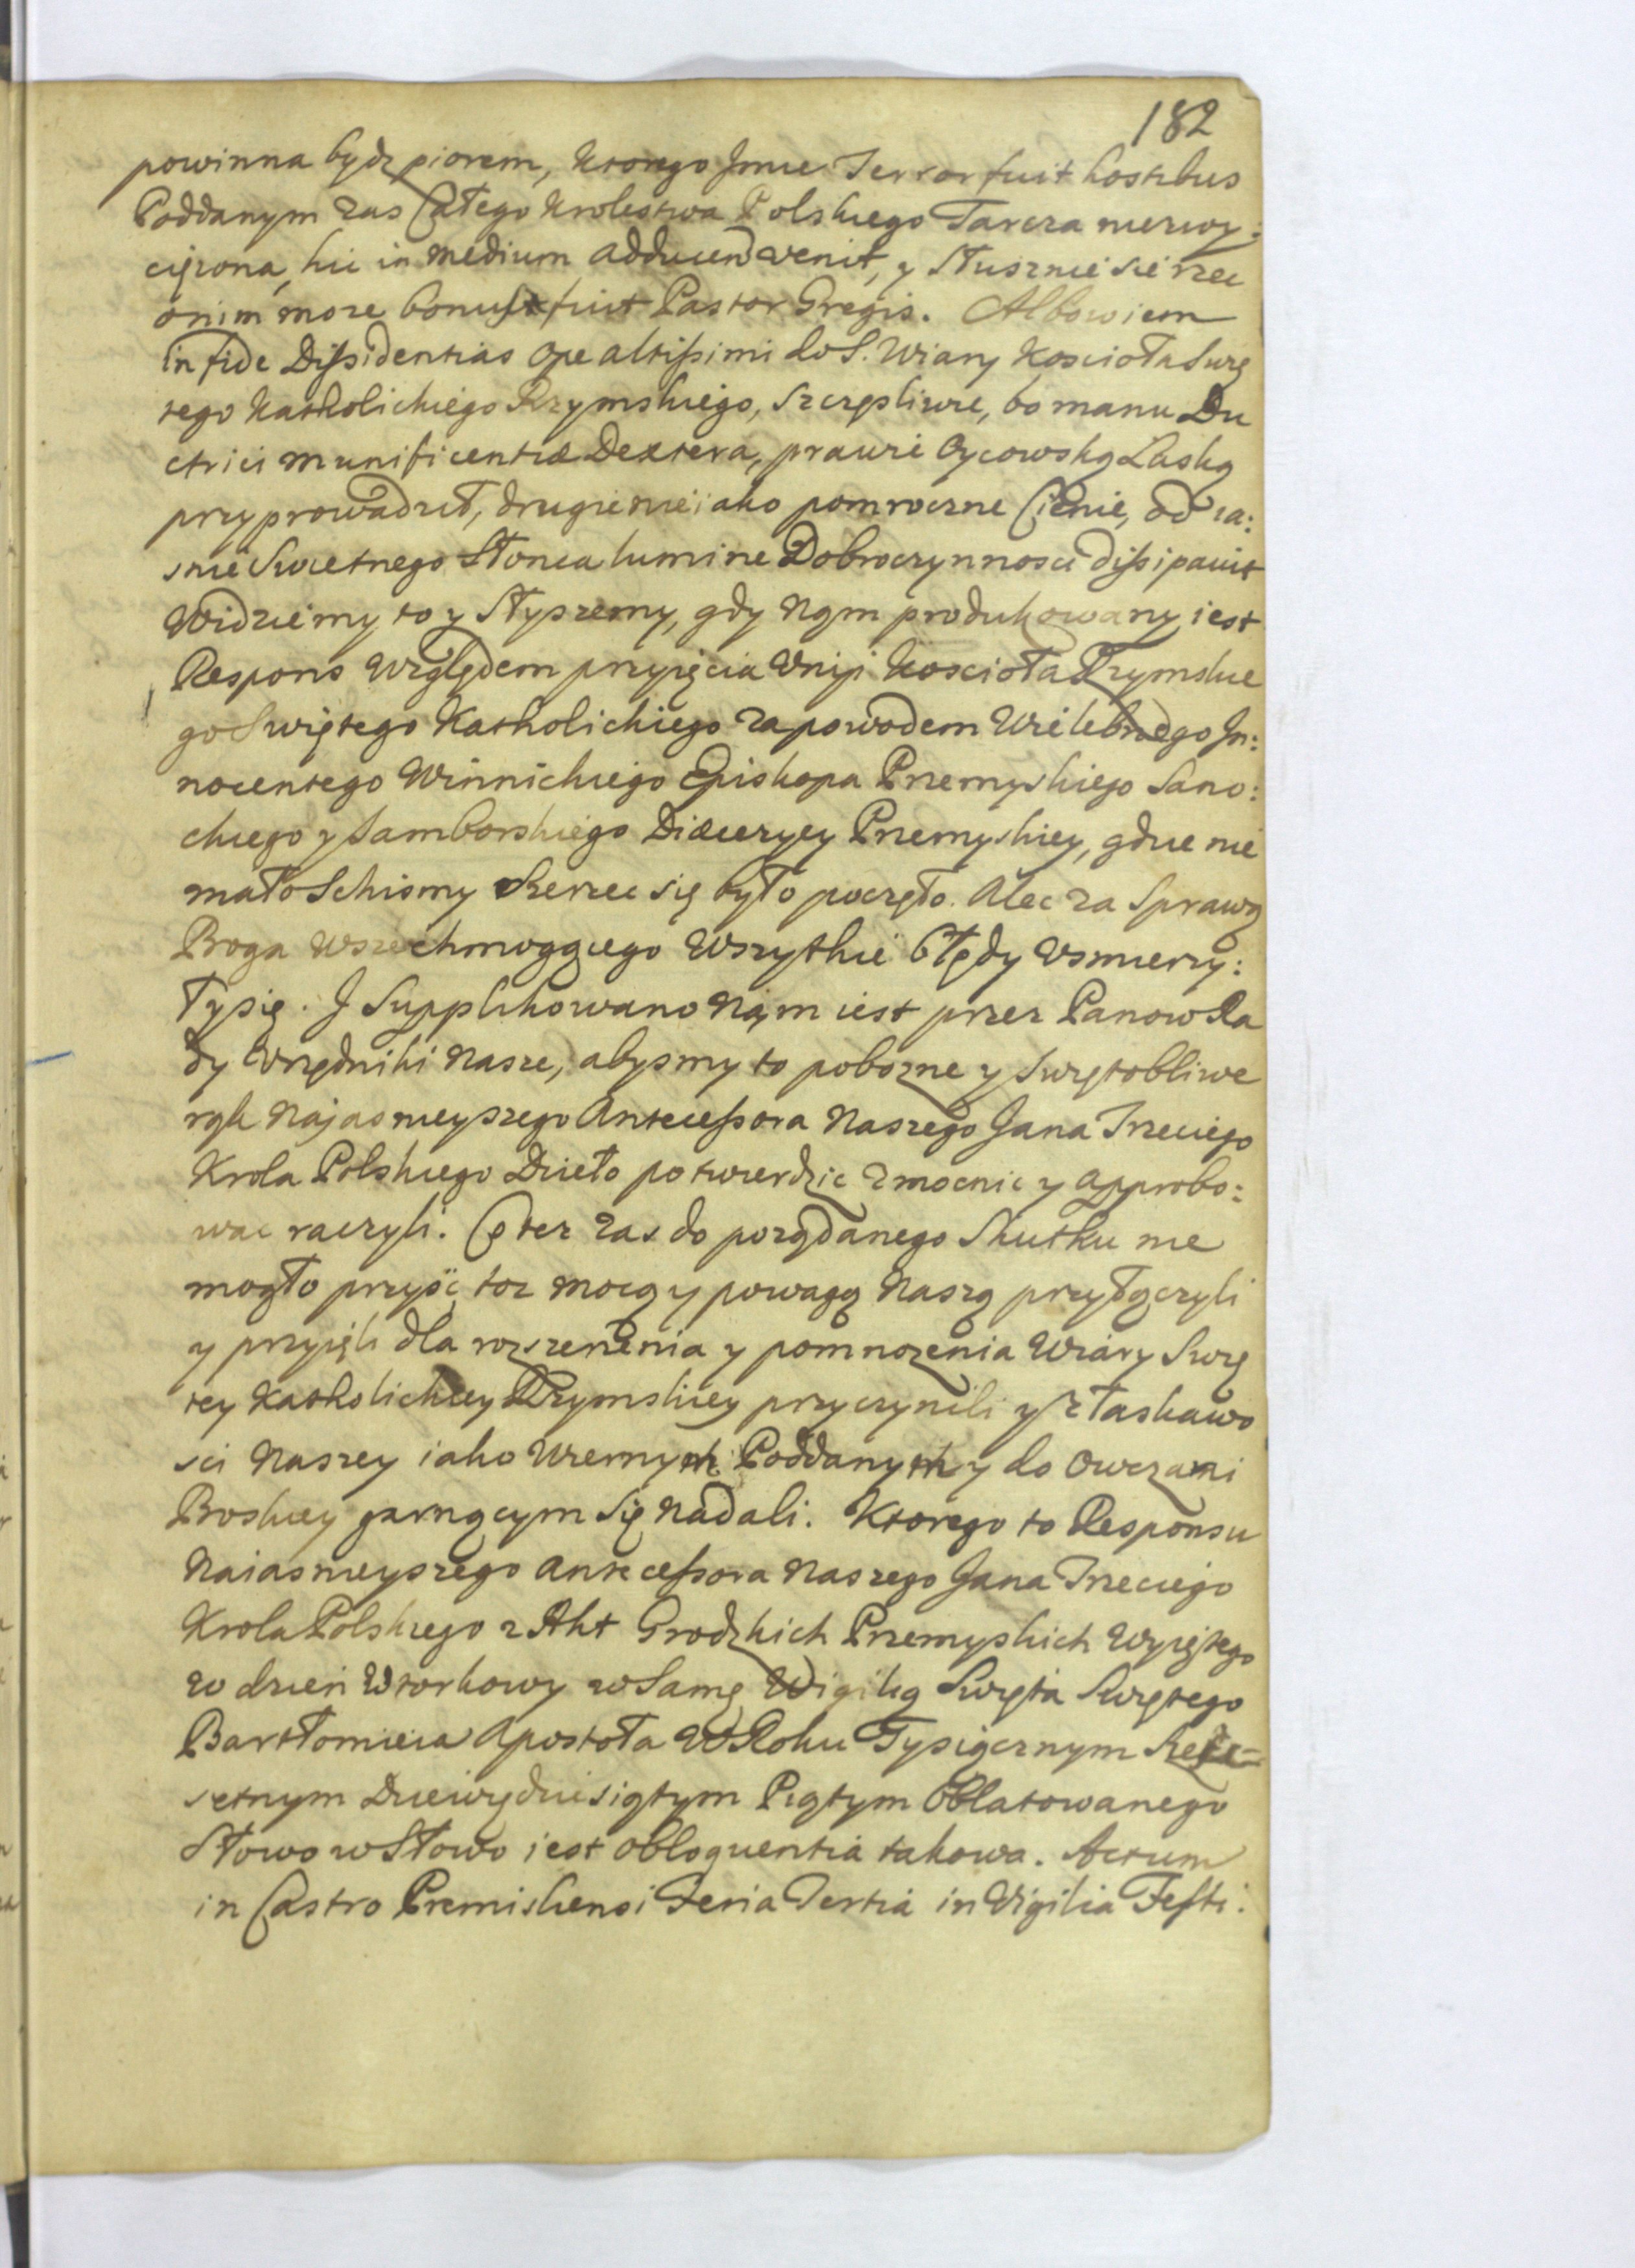 182
powinna bydz piorem, ktorego Jmie Terror fuit hostibus
Poddanym zas Całego Krolestwa Polskiego Tarcza niezwy:
ciężona, hic in medium adducend venit, y słusznie sie rzec
o nim moze bonus fuit Pastor Gregis. Albowiem
in fide Dissidentias ope altissimi do S. Wiary Koscioła Swię
tego Katholickiego Rzymskiego, szczęsliwie, bo manu Du
ctrici munificentiæ Dextera, prawie Oycowską Laską
przyprowadził, drugie nieiako pomroczne Cienie, od ia:
snie Swietnego Słonca lumine Dobroczynnosci dissipavit
Widziemy to y Słyszemy, gdy Nąm produkowany iest
Respons Względem przyięcia Vnij Koscioła Rzymskie
go Swiętego Katholickiego za powodem Wielebnego Jn:
nocentego Winnickiego Episkopa Przemyskiego Sano:
ckiego y Samborskiego Diæcezyey Przemyskiey, gdzie nie
mało Schismy Szerzec się było poczęło. Alec za Sprawą
Boga Wszechmogącego Wszytkie błędy Vsmierzy:
ły się. J Supplikowano Nąm iest przez Panow Ra
dy Vrzędniki Nasze, abysmy to pobozne y Swiętobliwe
rąk Najasnieyszego Antecessora Naszego Jana Trzeciego
Krola Polskiego Dzieło potwierdzic zmocnic y approbo:
wac raczyli. Coter zas do porządanego Skutku nie
mogło przyść, toz mocą y powagą Naszą przyłączyli
y przyięli dla rozszerzenia y pomnozenia Wiary Swię
tey Katholickiey Rzymskiey przyczynili y z łaskawo
sci Naszey iako Wiernym Poddanym y do Owczarni
Boskiey garnącym się Nadali. Ktorego to Responsu
Naiasnieyszego Antecessora Naszego Jana Trzeciego
Krola Polskiego z Akt Grodzkich Przemyskich Wyiętego
w dzien Wtorkowy w Samę Wigilią Swięta Swiętego
Bartłomieia Apostoła W Roku Tysiącznym Sześć=
setnym Dziewiędziesiątym Piątym Oblatowanego
Słowo w Słowo iest obloquentia takowa. Actum
in Castro Premisliensi Feria Tertia in Vigilia Festi.